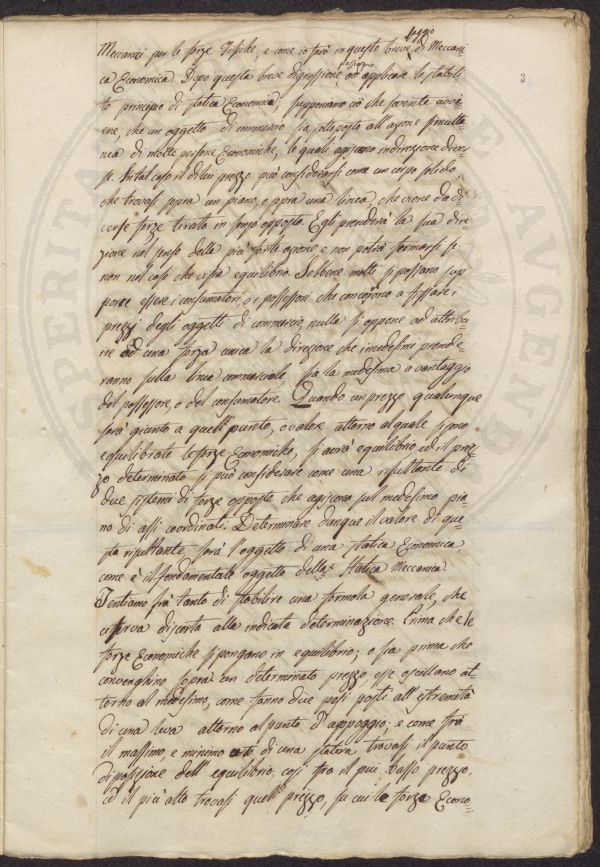 saggio
Meccanici per le forze Fisiche, e come io farò in questo breve di Meccani
ca Economica. Dopo questa breve digressione passiamo ad applicare lo stabili
to principio di statica Economica; supponiamo ciò che sovente avvi
ene, che un oggetto di commercio sia sottoposto all'azione simulta
nea di molte persone Economiche, le quali agiscano in direzione diver
se. In tal caso il di lui prezzo può considerarsi come un corpo solido,
che trovasi sopra un piano, o sopra una linea, che viene da di
verse forze tirato in senso opposto. Egli prenderà la sua dire
zione nel senso della più forte azione e non potrà fermarsi se
non nel caso che vi sia equilibrio. Sebbene molti si possano sup
porre essere i consumatori, o i possessori che concorrono a fissare i
prezzi degli oggetti di commercio, nulla si oppone ad attribu
ire ad una forza unica la direzione che i medesimi prende
ranno sulla linea commerciale, sia la medesima a vantaggio
del possessore, o del consumatore. Quando un prezzo qualunque
sarà giunto a quell'punto, o valore attorno al quale si sono
equilibrate le forze Economiche, si avrà equilibrio ed il prez
zo determinato si può considerare come una risultante di
due sistemi di forze opposte che agiscono sul medesimo pia
no di assi coordinati. Determinare dunque il valore di que
sta risultante sarà l'oggetto di una statica Economica,
come è il fondamentale oggetto della Statica Meccanica.
Tentiamo frà tanto di stabilire una formola generale, che
ci serva di scorta alla indicata determinazione. Prima che le
forze Economiche si pongano in equilibrio; o sia prima che
convenghino sopra un determinato prezzo, esse oscillano at
torno al medesimo, come fanno due pesi posti all'estremità
di una leva attorno al punto d'appoggio; e come frà
il massimo, e minimo di una statera trovasi il punto
di posizione dell'equilibrio, così fra il più basso prezzo,
ed il più alto trovasi quell'prezzo, su cui le forze Econo-
3